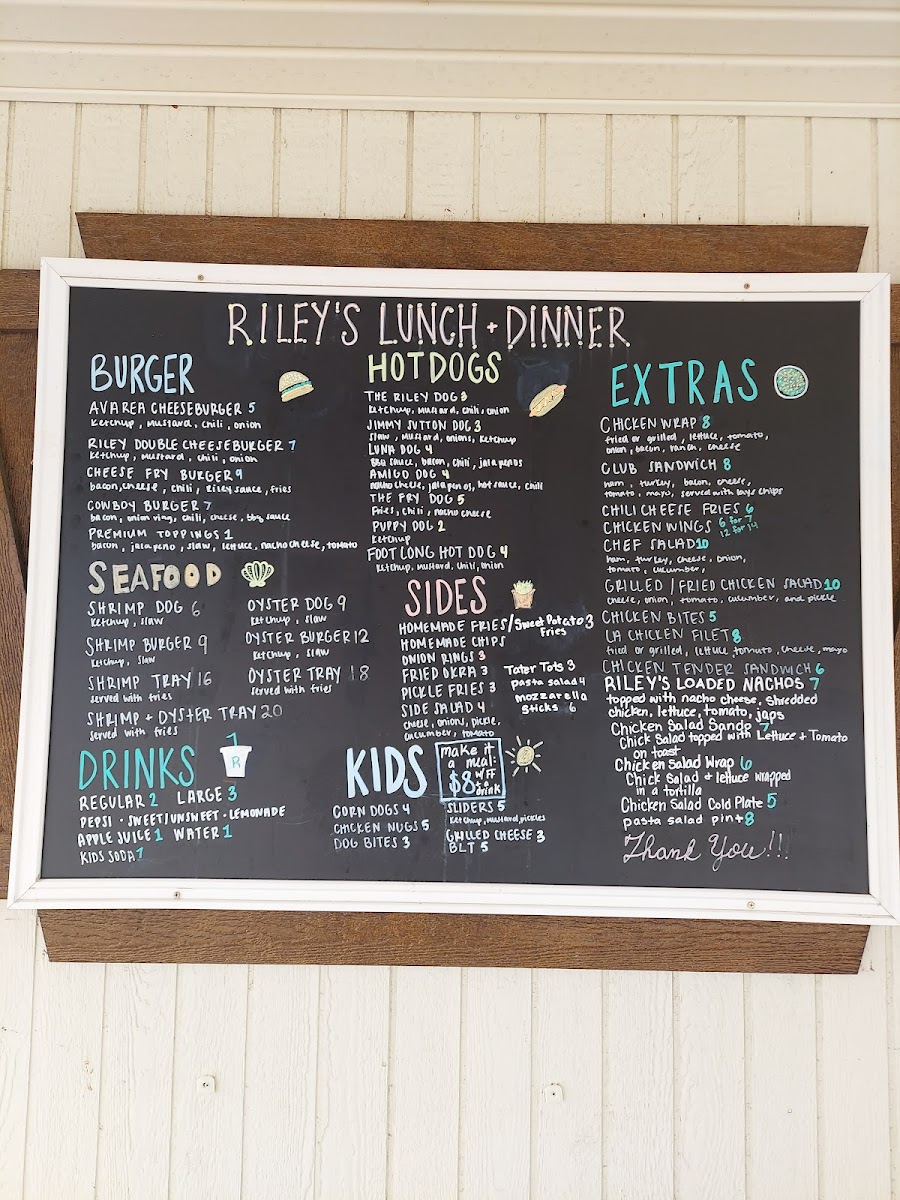 RILEY'S LUNCH + DINNER
BURGER
AVAREA CHEESEBURGER 5
Ketchup, mustard, chili, onion
RILEY DOUBLE CHEESEBURGER 7
Ketchup, mustard, chili, onion
CHEESE FRY BURGER 9
bacon, cheese, chili, Riley sauce, fries
COWBOY BURGER 7
bacon, onion ring, chili, cheese, bbq sauce
PREMIUM TOPPINGS 1
bacon, jalapeno, slaw, lettuce, nacho cheese, tomato
SEAFOOD
SHRIMP DOG 6
Ketchup, slaw
SHRIMP BURGER 9
Ketchup, slaw
SHRIMP TRAY 16
served with fries
SHRIMP + OYSTER TRAY 20
served with fries
OYSTER DOG 9
Ketchup, slaw
OYSTER BURGER 12
Ketchup, slaw
OYSTER TRAY 18
served with fries
DRINKS
R
REGULAR 2 LARGE 3
PEPSI • SWEET/UNSWEET • LEMONADE
APPLE JUICE 1 WATER 1
KIDS SODA 1
HOTDOGS
THE RILEY DOG 3
Ketchup, mustard, chili, onion
JIMMY SUTTON DOG 3
Slaw, mustard, onions, Ketchup
LUNA DOG 4
BBQ sauce, bacon, chili, jalapenos
AMIGO DOG 4
nacho cheese, jalapenos, hot sauce, chili
THE FRY DOG 5
Fries, chili, nacho cheese
PUPPY DOG 2
Ketchup
FOOT LONG HOT DOG 4
Ketchup, mustard, chili, onion
SIDES
HOMEMADE FRIES/Sweet Potato 3
Fries
HOMEMADE CHIPS
ONION RINGS 3
FRIED OKRA 3
PICKLE FRIES 3
SIDE SALAD 4
cheese, onions, pickle,
cucumber, tomato
Tater Tots 3
pasta salad 4
mozzarella
sticks 6
KIDS
make it
a meal:
$8 w/FF
+ a
drink
CORN DOGS 4
CHICKEN NUGS 5
DOG BITES 3
SLIDERS 5
Ketchup, mustard, pickles
GRILLED CHEESE 3
BLT 5
EXTRAS
CHICKEN WRAP 8
fried or grilled, lettuce, tomato,
onion, bacon, ranch, cheese
CLUB SANDWICH 8
ham, turkey, bacon, cheese,
tomato, mayo, served with lays chips
CHILI CHEESE FRIES 6
CHICKEN WINGS 6 for 7
12 for 14
CHEF SALAD 10
ham, turkey, cheese, onion,
tomato, cucumber,
GRILLED / FRIED CHICKEN SALAD 10
cheese, onion, tomato, cucumber, and pickle
CHICKEN BITES 5
LA CHICKEN FILET 8
fried or grilled, lettuce tomato, cheese, mayo
CHICKEN TENDER SANDWICH 6
RILEY'S LOADED NACHOS 7
topped with nacho cheese, Shredded
chicken, lettuce, tomato, japs
Chicken Salad Sando 7
Chick Salad topped with Lettuce + Tomato
on toast
Chicken Salad Wrap 6
Chick Salad + lettuce wrapped
in a tortilla
Chicken Salad Cold Plate 5
pasta salad pint 8
Thank You!!!